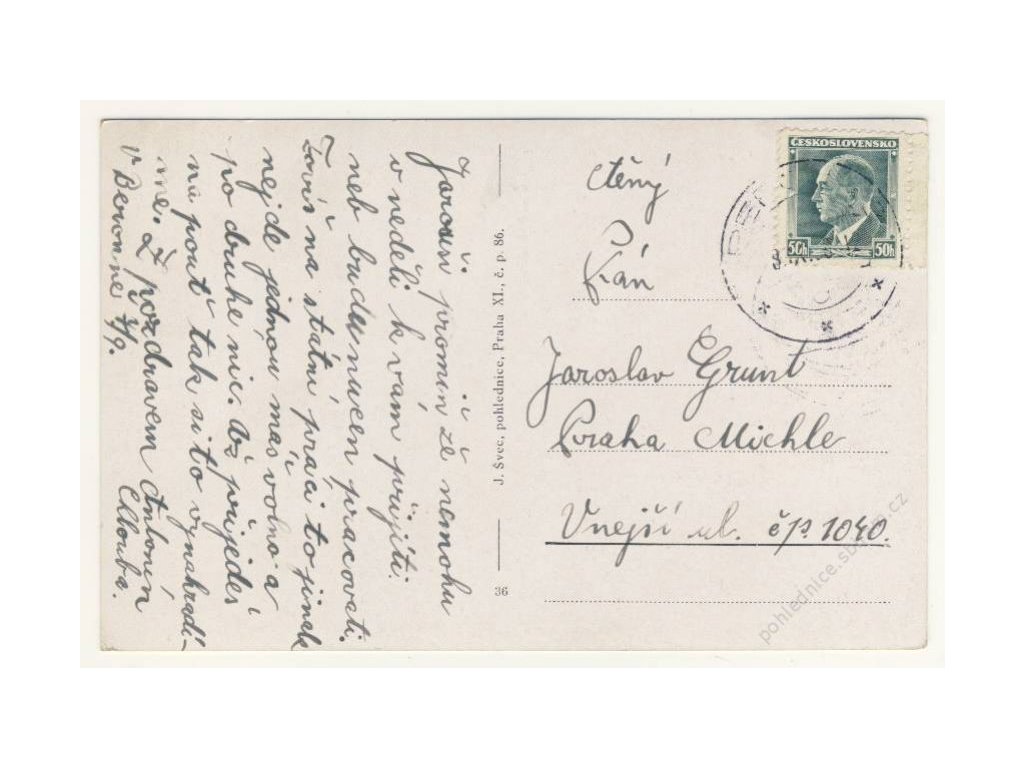 Jarouši promiň že nemohu
v neděli k vám přijíti.
neb budu muset pracovati.
Zovís na státní práci to jinak
nejde jednou máš volno a
po druhé nic. až přijedeš
na pouť tak si to vynahradí-
me. Z pozdravem Antonín
v Berouně 7/9. Chlouba.
J. Švec, pohlednice, Praha XI., č. p. 86.
36
ČESKOSLOVENSKO
50h 50h
ctěný
Pán
Jaroslav Grunt
Praha Michle
Vnejší ul. čp. 1040.
pohlednice.sbiram.cz